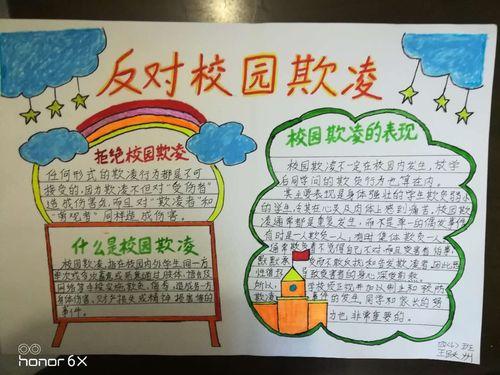 反对校园欺凌
拒绝校园欺凌
任何形式的欺凌行为都是不可
接受的,因为欺凌不但对“受伤者”
造成伤害,而且对“欺凌者”和
同样造成伤害。
什么是校园欺凌
校园欺凌,指在校园内外学生间一方
单次或多次蓄意或恶意通过肢体、语言及
网络等手段实施欺负、侮辱,造成另一方
身体伤害、财产损失或精神损害等的
事件。
校园欺凌的表现
校园欺凌不一定在校园内发生,放学
后同学间的欺负行为也算在内。
其主要表现是身体强壮的学生欺负弱小
的学生,令其在心灵及肉体上感到痛苦,校园欺
凌通常都是重复发生,而不是单一的偶发事件。
有时是一人欺负一人,有时集体欺负一人
通常欺负者不觉得自己不对,而且受害者怕事
默默承受而不敢反抗和告发欺凌者,因此恶
性循环,导致受害者的身心深受煎熬
所以,学校
欺凌事件的发生,同学和家长的努
力也非常重要的。
班
honor 6X